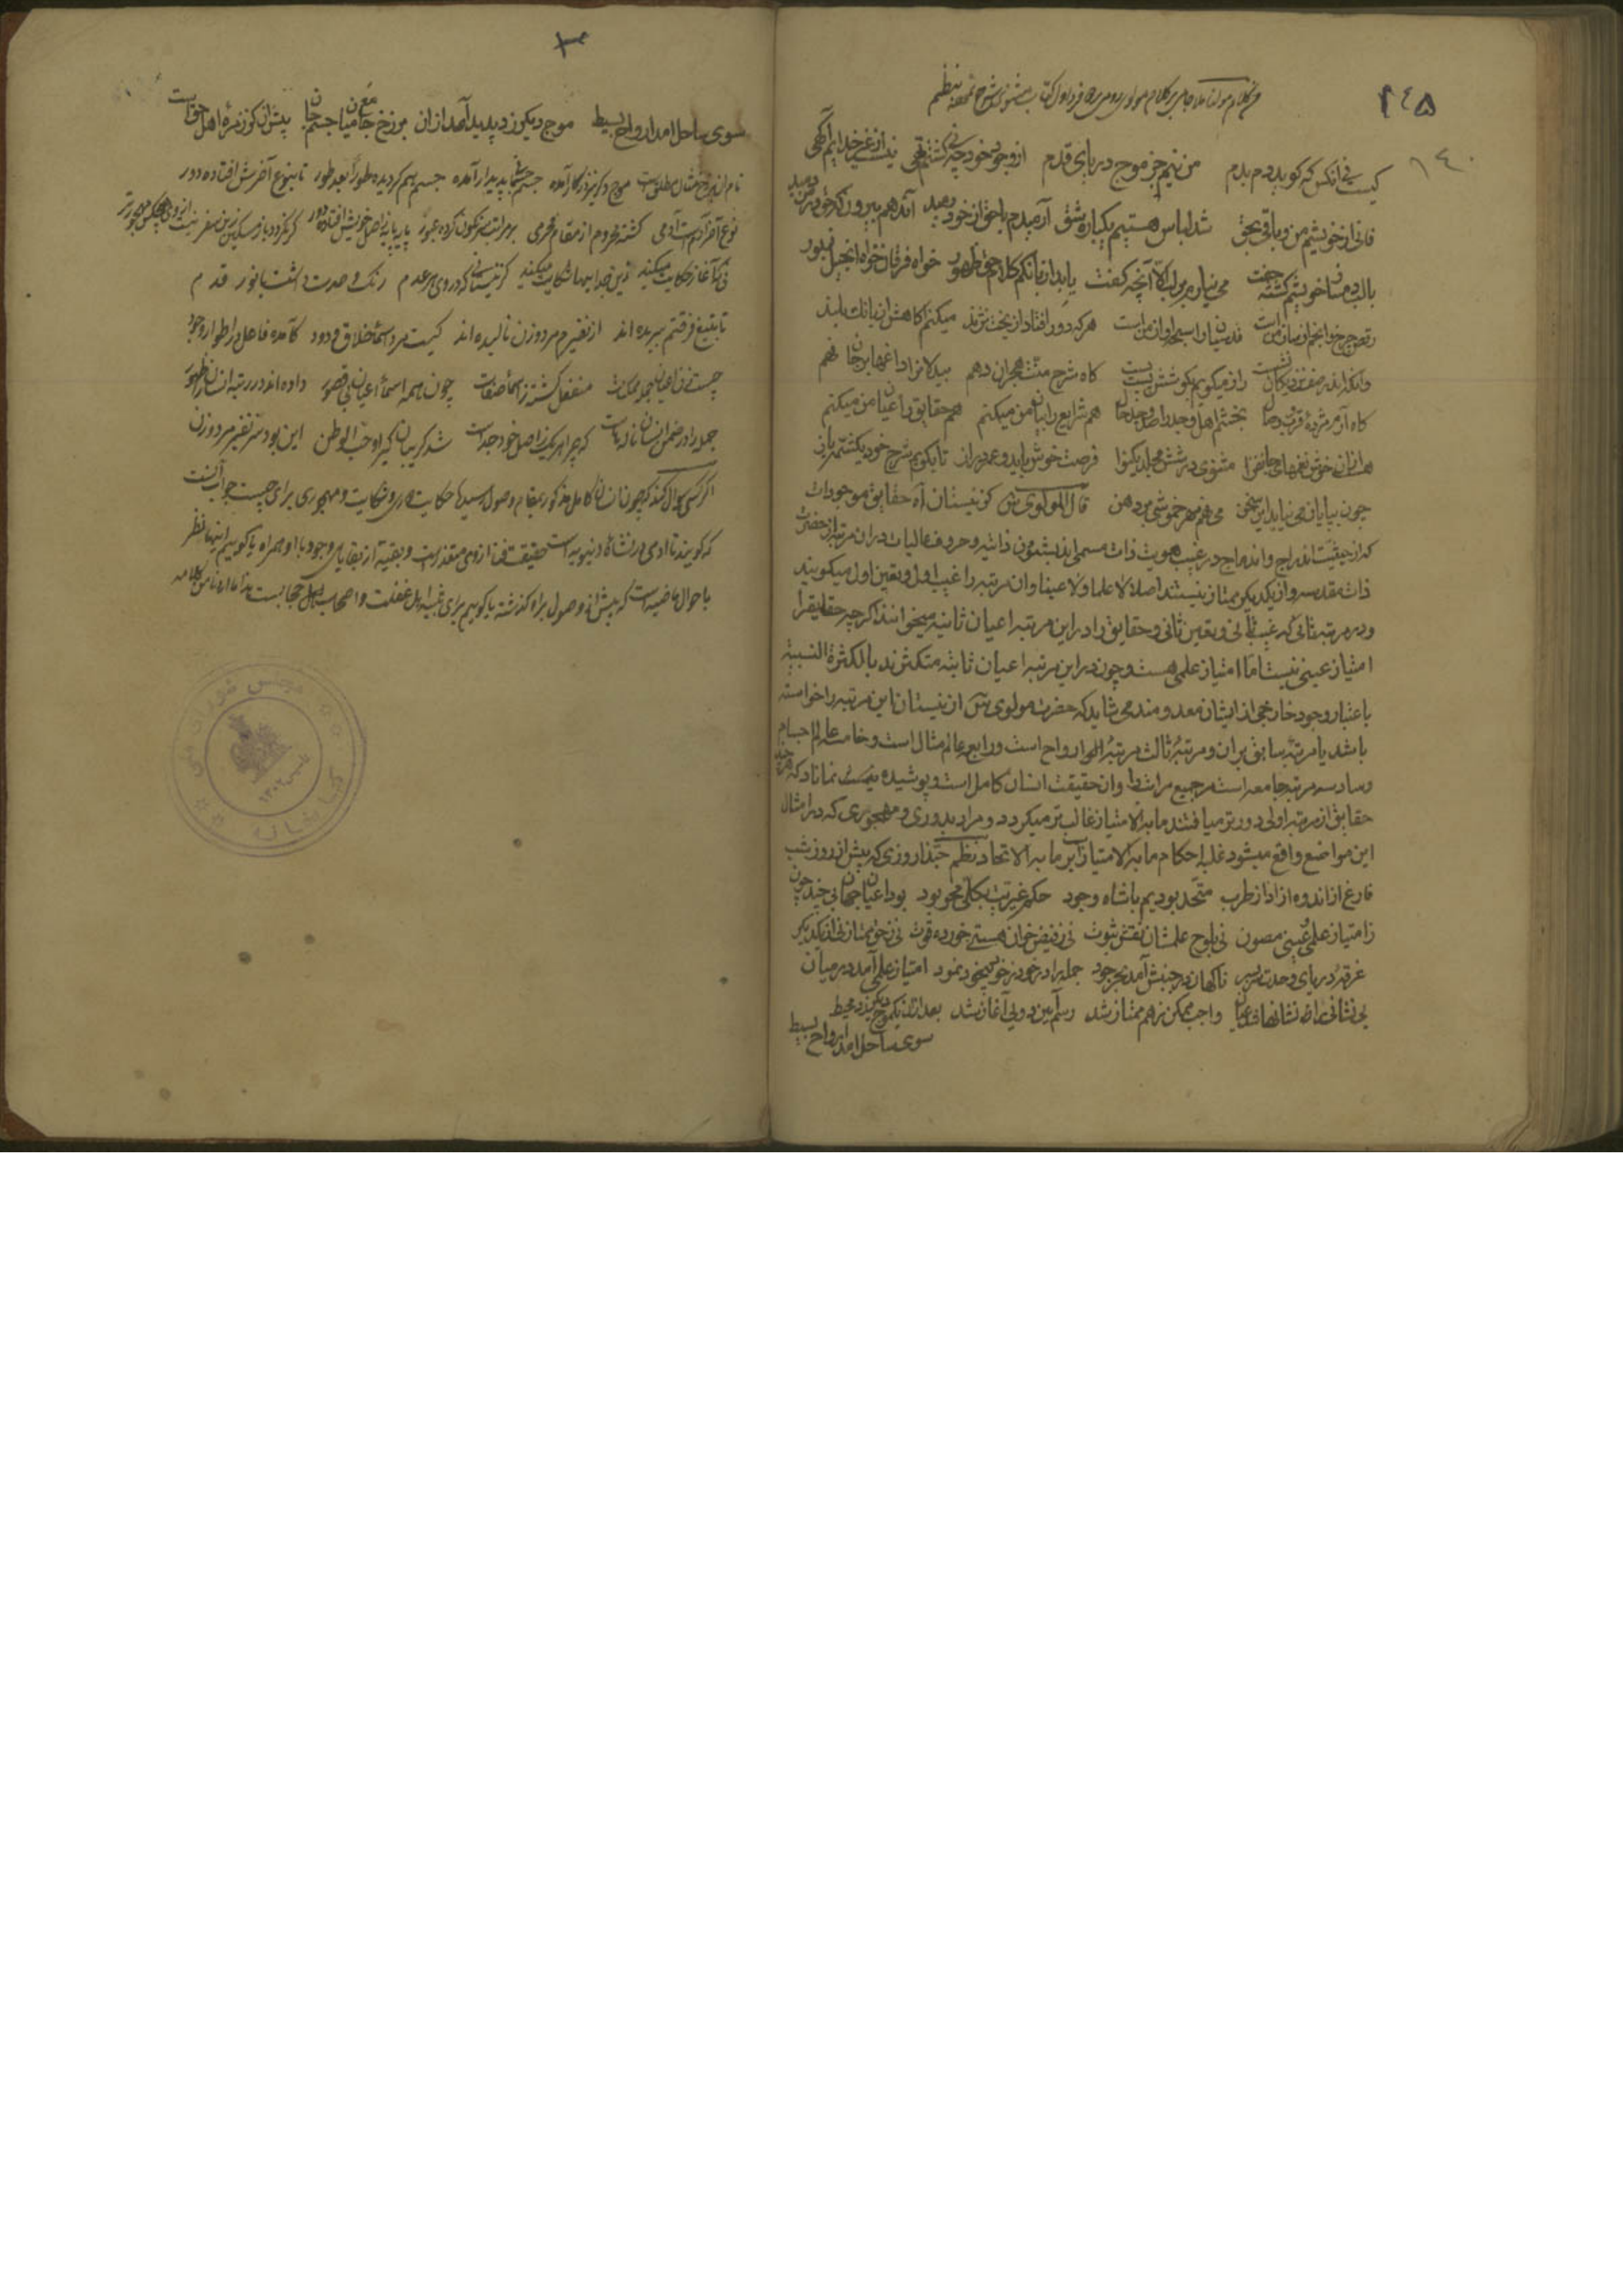 ١٤٥
١٤٠
من کلام مولانا ملا جامی بر کلام مولوی رومی
کیست نی آنکس که گوید دم بدم من نیم جز موج دریای قدم از وجود خود چو نی گشتم تهی نیست از غیر خدایم آگهی
فانی از خویشم من و باقی بحق شد لباس هستیم یکباره شق آرمیدم با حق و از خود رمید آندهم بیرون که حق در من دمید
با لب دمساز خویشم گشته جفت می نیارم بر لب الا آنچه گفت یابد از بانگم کلام حق ظهور خواه فرقان خواه انجیل و زبور
رقص چرخ و انجم از ساز منست قدسیان را سبحه از آواز منست هر که دور افتاد از بخت نژند میکنم آگاهش از بانک بلند
وانکه اندر صف نزدیکان نشست راز میگویم بگوشش پست پست گاه شرح محنت هجران دهم بیدلانرا داغها بر جان نهم
گاه آرم مژده قرب وصال بخشم اهل وجد را صد وجد و حال هم شرایع را بیان من میکنم هم حقایق را عیان من میکنم
هست از آن خوش نغمهای جانفزا مثنوی در شش مجلد یکنوا فرصت خوش باید و عمر دراز تا بگویم شرح خود یکشمه باز
چون بپایان می نیاید این سخن می نهم مهر خموشی بر دهن قال المولوی کز نیستان آه حقایق موجودات
که از حیثیت اندراج و اندماج در غیب هویت ذات مسمی اند بشئون ذاتیه و حروف عالیات در آن مرتبه از حضرت
ذات مقدسه و از یکدیگر ممتاز نیستند اصلا لا علما و لا عینا و آن مرتبه را غیب اول و تعین اول میگویند
و در مرتبه ثانی که غیب ثانی و تعین ثانی و حقایق را در این مرتبه اعیان ثابته میخوانند اگر چه حقایق را
امتیاز عینی نیست اما امتیاز علمی هست و چون در این مرتبه اعیان ثابته متکثرند بالکثرة النسبیه
باعتبار وجود خارجی از ایشان معدومند می شاید که حضرت مولوی از نیستان این مرتبه را خواسته
باشد یا مرتبه سابق بر آن و مرتبه ثالث مرتبه ارواح است و رابع عالم مثال است و خامس عالم اجسام
و سادس مرتبه جامعه است مر جمیع مراتب را و آن حقیقت انسان کامل است و پوشیده نماناد که هر چند
حقایق از مرتبه اولی دورتر میافتند ما به الامتیاز غالب تر میگردد و مراد بدوری و مهجوری که در امثال
این مواضع واقع میشود غلبه احکام ما به الامتیاز است بر ما به الاتحاد نظم حبذا روزی که پیش از روز و شب
فارغ از اندوه و آزاد از طرب متحد بودیم با شاه وجود حکم غیریت بکلی محو بود بود اعیان جهان بی چند و چون
ز امتیاز علمی و عینی مصون نی بلوح علمشان نقش ثبوت نی ز فیض خوان هستی خورده قوت نی ز حق ممتاز نی از یکدیگر
غرقه دریای وحدت سر بسر ناگهان در جنبش آمد بحر جود جمله را در خود ز خود بیخود نمود امتیاز علمی آمد در میان
بی نشانی را نشانها شد عیان واجب و ممکن ز هم ممتاز شد رسم آیین دویی آغاز شد بعد از آن یکموج دیگر زد محیط
سوی ساحل آمد ارواح بسیط
سوی ساحل آمد ارواح بسیط موج دیگر زد پدید آمد از آن برزخ جامع میان جسم و جان پیش آن کز زمره اهل حق است
نام آن برزخ مثال مطلق است موج دیگر نیز در کار آمده جسم و جسمانی پدیدار آمده جسم هم گردیده طورا بعد طور تا بنوع آخرش افتاده دور
نوع آخر آدم است و آدمی گشته محروم از مقام محرمی بر مراتب سرنگون کرده عبور پایه پایه ز اصل خویش افتاده دور گر نگردد باز مسکین زین سفر نیست از وی هیچکس مهجورتر
نی که آغاز حکایت میکند زین جداییها شکایت میکند کز نیستانی که در وی هر عدم رنگ وحدت داشت با نور قدم
تا بتیغ فرقتم ببریده اند از نفیرم مرد و زن نالیده اند کیست مرد اسماء خلاق ودود کآمده فاعل در اطوار وجود
چیست زن اعیان جمله ممکنات منفعل گشته ز اسما و صفات چون همه اسما و اعیان بی قصور داده اند در رتبه انسان ظهور
جمله را در ضمن انسان ناله هاست که چرا هر یک ز اصل خود جداست شد گریبان گیر او حب الوطن این بود سر نفیر مرد و زن
اگر کسی سؤال کند که چون انسان کامل مذکور بمقام وصول رسید حکایت دوری و شکایت و مهجوری برای چیست جواب آنست
که گویند تا آدمی در نشأه دنیویه است حقیقت فنا از وی متعذر است و بقیه از بقایای وجود با او همراه یا گوییم اینها نظر
باحوال ماضیه است که پیش از وصول بر او گذشته یا گوییم برای تنبیه اهل غفلت و اصحاب حجابست
کتابخانه مجلس شورای ملی